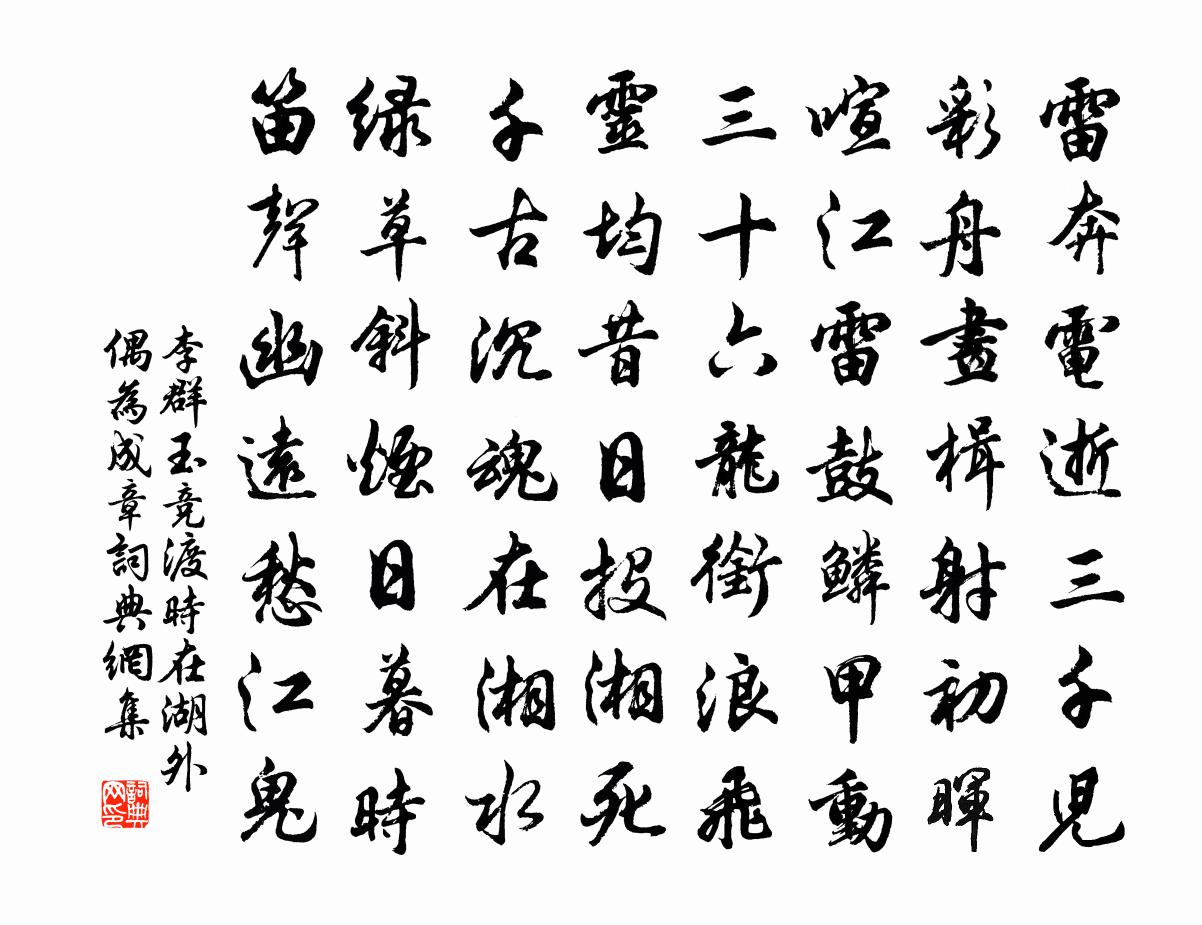 雷奔電逝三千兒
彩舟畫楫射初暉
喧江雷鼓鱗甲動
三十六龍銜浪飛
靈均昔日投湘死
千古沉魂在湘水
绿草斜煙日暮時
笛聲幽遠愁江鬼
李群玉竞渡時在湖外
偶為成章詞典網集
詞典网印